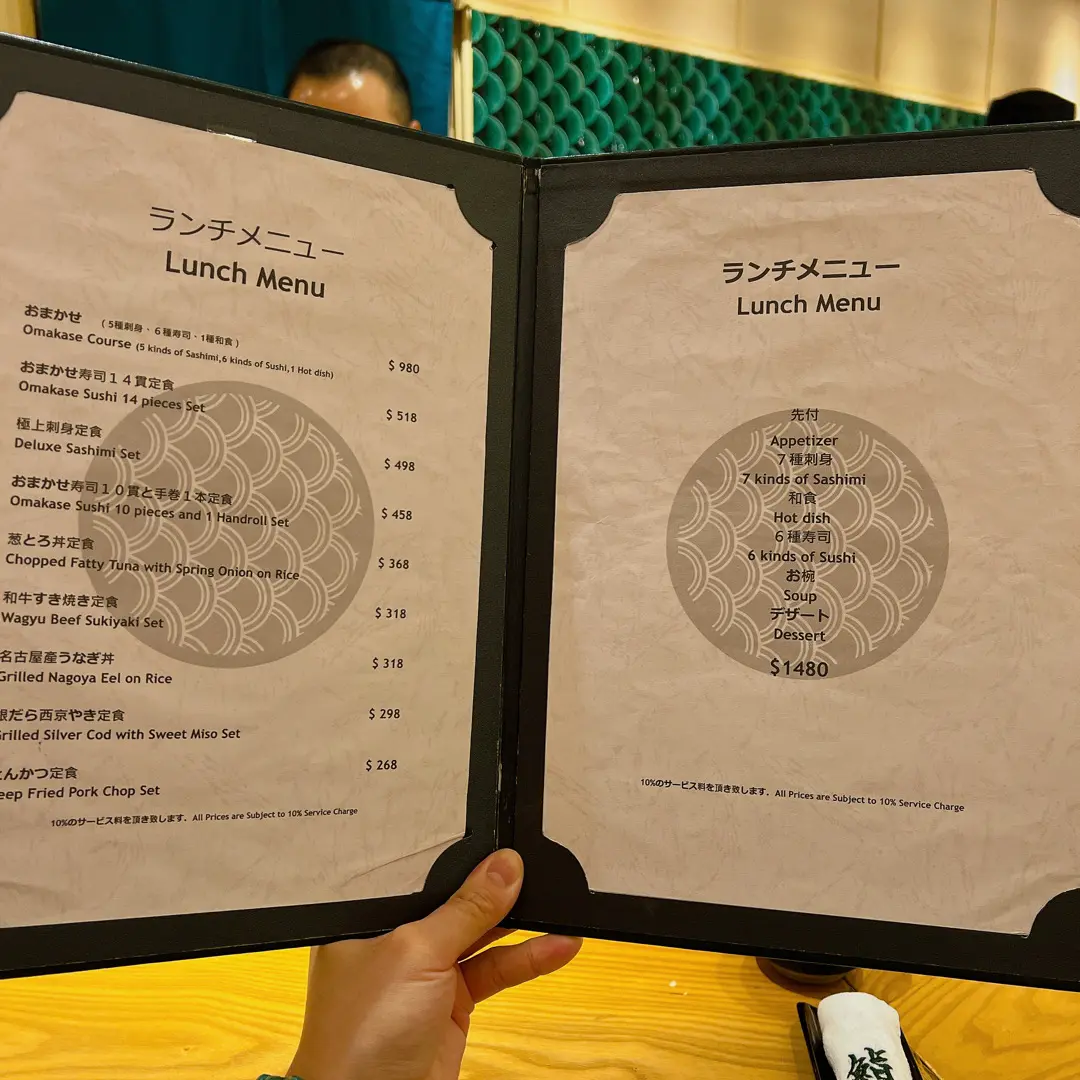 ランチメニュー
Lunch Menu
おまかせ (5種刺身・6種寿司・1種和食)
Omakase Course (5 kinds of Sashimi,6 kinds of Sushi,1 Hot dish) $ 980
おまかせ寿司14貫定食
Omakase Sushi 14 pieces Set $ 518
極上刺身定食
Deluxe Sashimi Set $ 498
おまかせ寿司10貫と手巻1本定食
Omakase Sushi 10 pieces and 1 Handroll Set $ 458
葱とろ丼定食
Chopped Fatty Tuna with Spring Onion on Rice $ 368
和牛すき焼き定食
Wagyu Beef Sukiyaki Set $ 318
名古屋產うなぎ丼
Grilled Nagoya Eel on Rice $ 318
銀だら西京やき定食
Grilled Silver Cod with Sweet Miso Set $ 298
とんかつ定食
eep Fried Pork Chop Set $ 268
10%のサービス料を頂き致します. All Prices are Subject to 10% Service Charge
ランチメニュー
Lunch Menu
先付
Appetizer
7種刺身
7 kinds of Sashimi
和食
Hot dish
6種寿司
6 kinds of Sushi
お椀
Soup
デザート
Dessert
$1480
10%のサービス料を頂き致します. All Prices are Subject to 10% Service Charge
鮨